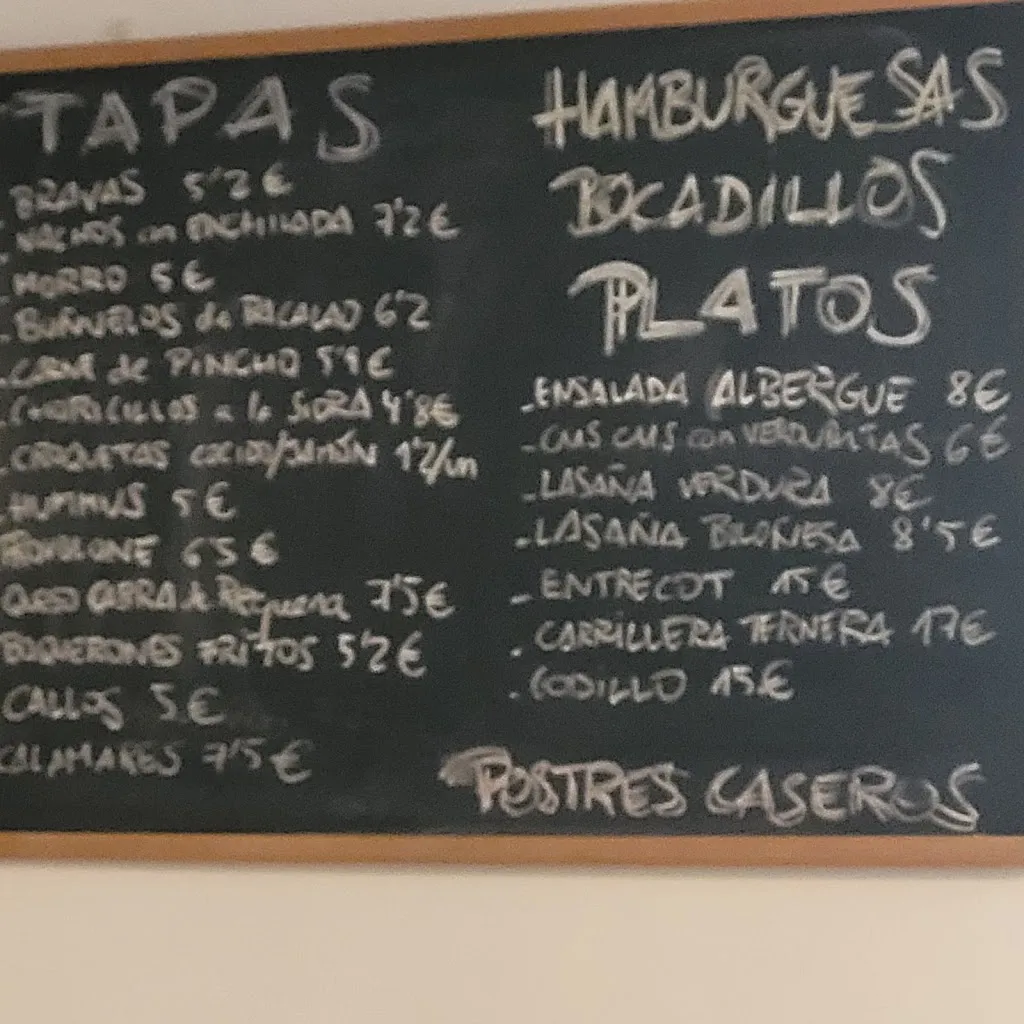 TAPAS
BRAVAS 5'2€
NACHOS con ENCHILADA 7'2€
MORRO 5€
BUÑUELOS de BACALAO 6'2
CARNE de PINCHO 5'9€
CHORICILLOS a la SIDRA 4'8€
CROQUETAS COCIDO/JAMÓN 1'2/un
HUMMUS 5€
PROVOLONE 6'5€
QUESO CABRA de Requena 7'5€
BOQUERONES FRITOS 5'2€
CALLOS 5€
CALAMARES 7'5€
HAMBURGUESAS
BOCADILLOS
PLATOS
-ENSALADA ALBERGUE 8€
-CUS CUS con VERDURITAS 6€
-LASAÑA VERDURA 8€
-LASAÑA BOLOÑESA 8'5€
-ENTRECOT 15€
.CARRILLERA TERNERA 17€
.CODILLO 15€
POSTRES CASEROS